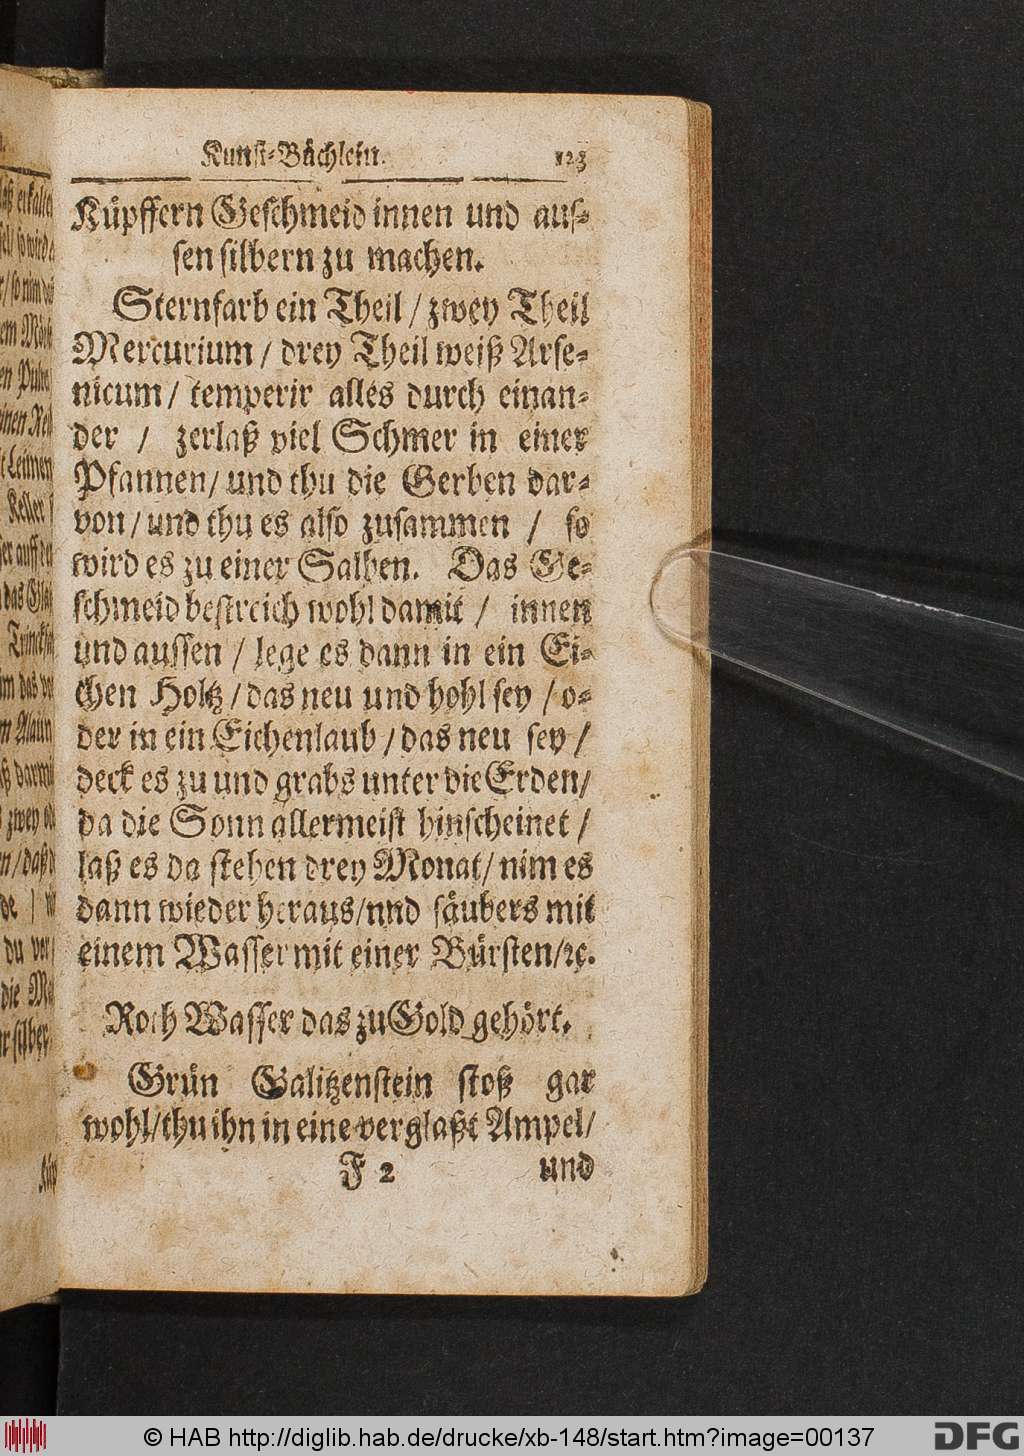 Kunst-Büchlein. 123
Küpffern Geschmeid innen und aus-
sen silbern zu machen.
Sternfarb ein Theil / zwey Theil
Mercurium / drey Theil weiß Arse-
nicum / temperir alles durch einan-
der / zerlaß viel Schmer in einer
Pfannen / und thu die Gerben dar-
von / und thu es also zusammen / so
wird es zu einer Salben. Das Ge-
schmeid bestreich wohl damit / innen
und aussen / lege es dann in ein Ei-
chen Holtz / das neu und hohl sey / o-
der in ein Eichenlaub / das neu sey /
deck es zu und grabs unter die Erden /
da die Sonn allermeist hinscheinet /
laß es da stehen drey Monat / nim es
dann wieder heraus / nnd säubers mit
einem Wasser mit einer Bürsten / ꝛc.
Roth Wasser das zu Gold gehört.
Grün Galitzenstein stoß gar
wohl / thu ihn in eine verglaßt Ampel /
F 2 und
© HAB http://diglib.hab.de/drucke/xb-148/start.htm?image=00137
DFG